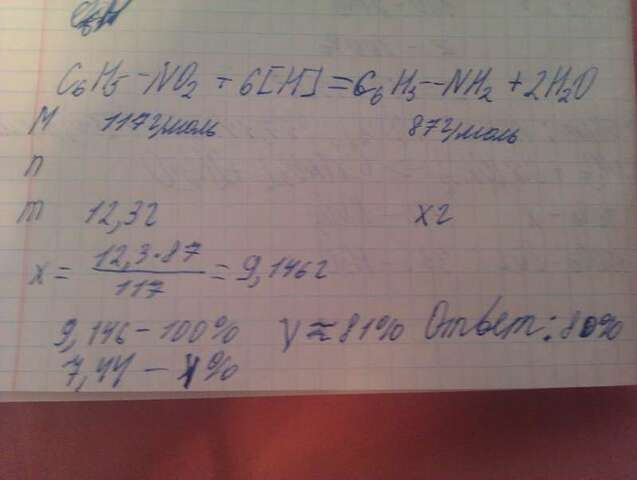 C6H5-NO2 + 6[H] = C6H5-NH2 + 2H2O
M 117г/моль 87г/моль
n
m 12,3г xг
x = 12,3*87/117 = 9,146г
9,146 - 100% y ≈ 81% Ответ: 80%
7,44 - x%